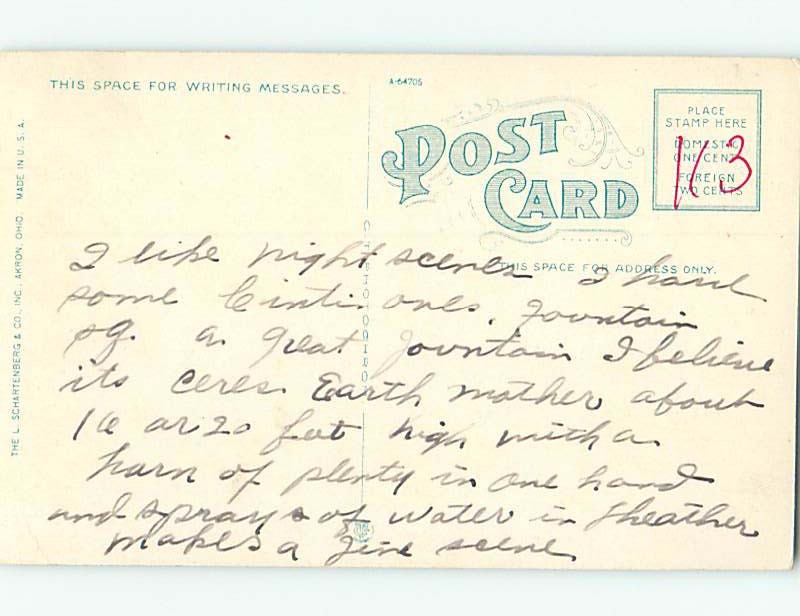 THIS SPACE FOR WRITING MESSAGES.
A-64705
POST
CARD
PLACE
STAMP HERE
DOMESTIC
ONE CENT
FOREIGN
TWO CENTS
THIS SPACE FOR ADDRESS ONLY.
THE L. SCHARTENBERG & CO., INC., AKRON, OHIO MADE IN U.S.A.
I like night scenes I have
some Cinti ones. Fountain
sq. a great fountain I believe
its Ceres Earth mother about
high with a
horn of plenty in one hand
and sprays of water in
makes a fine scene